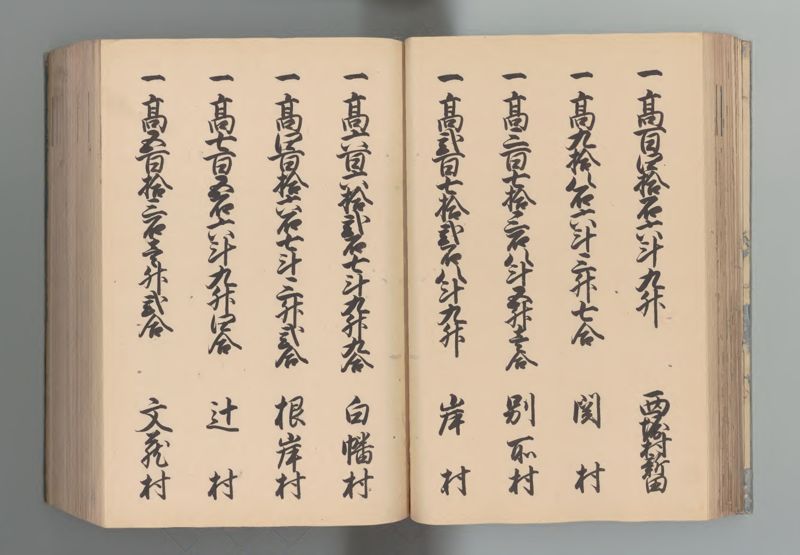 一 高百四拾石六斗九升 西堀村新田
一 高九拾八石六斗三升七合 関村
一 高三百七拾三石八斗五升壱合 別所村
一 高弐百七拾弐石八斗九升 岸村
一 高六百六拾弐石七斗九升九合 白幡村
一 高四百拾六石七斗三升弐合 根岸村
一 高七百五石六斗九升四合 辻村
一 高五百拾三石壱升弐合 文蔵村